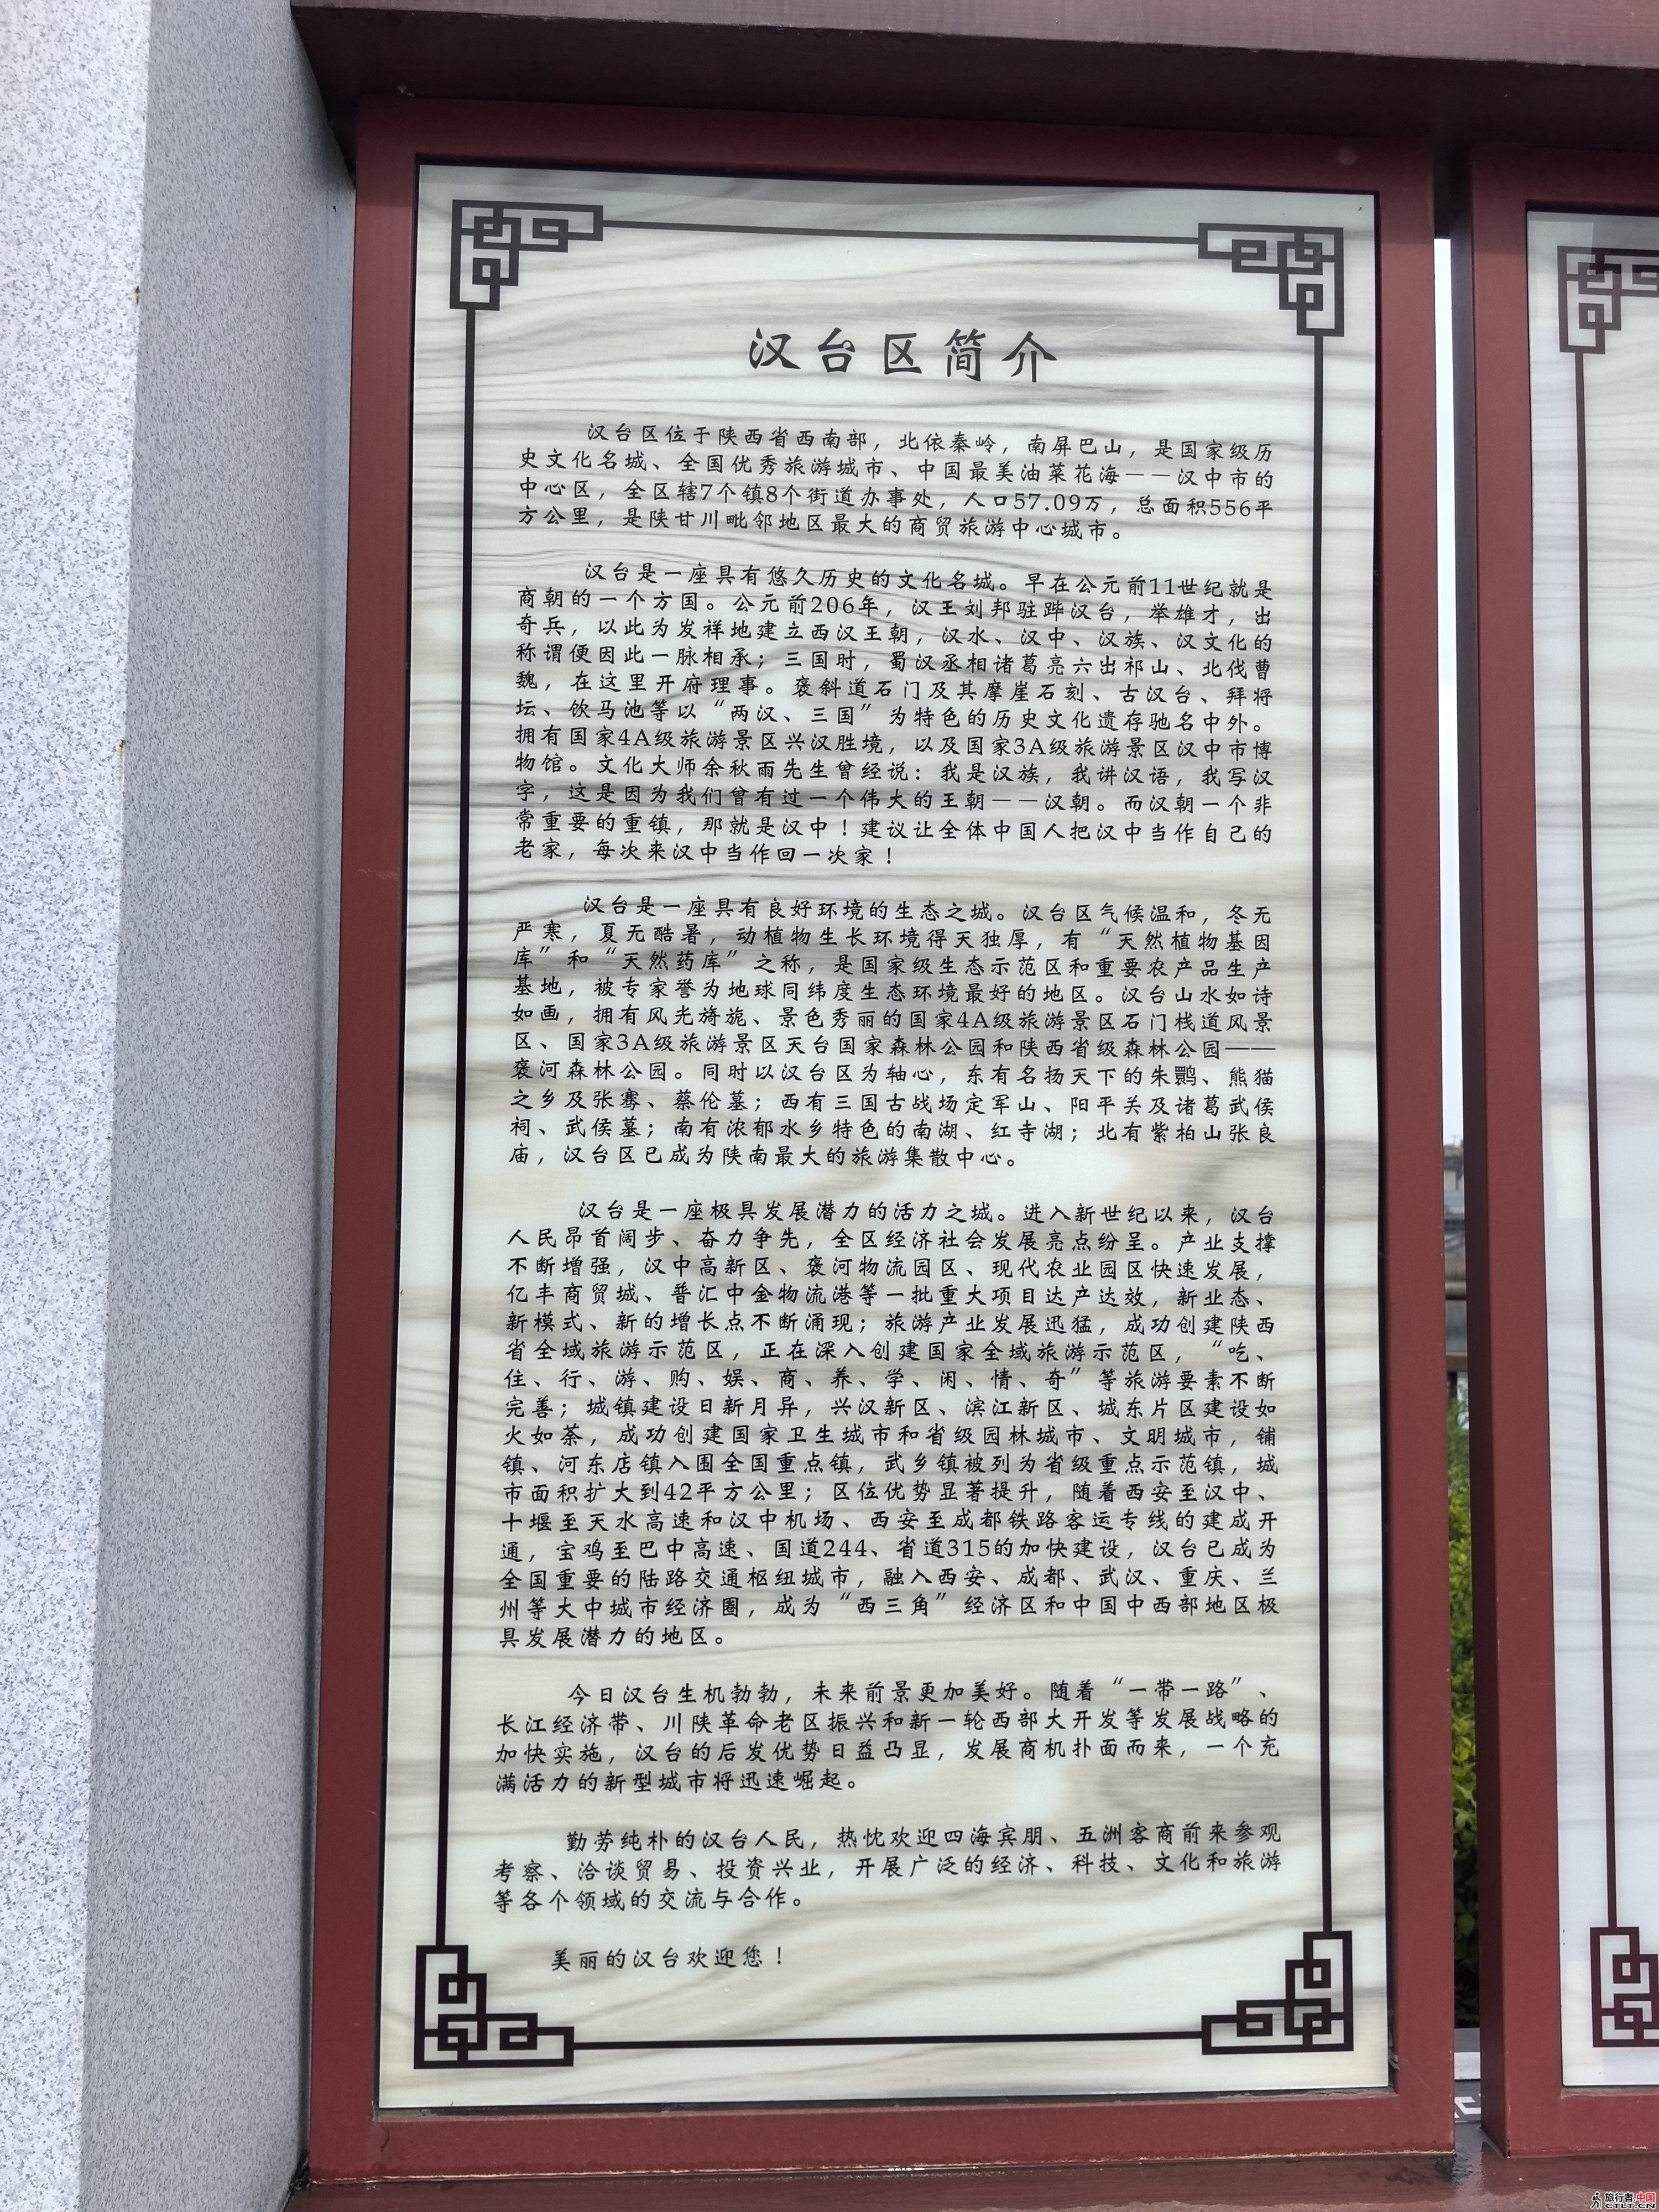 汉台区简介
汉台区位于陕西省西南部，北依秦岭，南屏巴山，是国家级历
史文化名城、全国优秀旅游城市、中国最美油菜花海——汉中市的
中心区，全区辖7个镇8个街道办事处，人口57.09万，总面积556平
方公里，是陕甘川毗邻地区最大的商贸旅游中心城市。
汉台是一座具有悠久历史的文化名城。早在公元前11世纪就是
商朝的一个方国。公元前206年，汉王刘邦驻跸汉台，举雄才，出
奇兵，以此为发祥地建立西汉王朝，汉水、汉中、汉族、汉文化的
称谓便因此一脉相承；三国时，蜀汉丞相诸葛亮六出祁山、北伐曹
魏，在这里开府理事。褒斜道石门及其摩崖石刻、古汉台、拜将
坛、饮马池等以“两汉、三国”为特色的历史文化遗存驰名中外。
拥有国家4A级旅游景区兴汉胜境，以及国家3A级旅游景区汉中市博
物馆。文化大师余秋雨先生曾经说：我是汉族，我讲汉语，我写汉
字，这是因为我们曾有过一个伟大的王朝——汉朝。而汉朝一个非
常重要的重镇，那就是汉中！建议让全体中国人把汉中当作自己的
老家，每次来汉中当作回一次家！
汉台是一座具有良好环境的生态之城。汉台区气候温和，冬无
严寒，夏无酷暑，动植物生长环境得天独厚，有“天然植物基因
库”和“天然药库”之称，是国家级生态示范区和重要农产品生产
基地，被专家誉为地球同纬度生态环境最好的地区。汉台山水如诗
如画，拥有风光旖旎、景色秀丽的国家4A级旅游景区石门栈道风景
区、国家3A级旅游景区天台国家森林公园和陕西省级森林公园——
褒河森林公园。同时以汉台区为轴心，东有名扬天下的朱鹮、熊猫
之乡及张骞、蔡伦墓；西有三国古战场定军山、阳平关及诸葛武侯
祠、武侯墓；南有浓郁水乡特色的南湖、红寺湖；北有紫柏山张良
庙，汉台区已成为陕南最大的旅游集散中心。
汉台是一座极具发展潜力的活力之城。进入新世纪以来，汉台
人民昂首阔步、奋力争先，全区经济社会发展亮点纷呈。产业支撑
不断增强，汉中高新区、褒河物流园区、现代农业园区快速发展，
亿丰商贸城、普汇中金物流港等一批重大项目达产达效，新业态、
新模式、新的增长点不断涌现；旅游产业发展迅猛，成功创建陕西
省全域旅游示范区，正在深入创建国家全域旅游示范区，“吃、
住、行、游、购、娱、商、养、学、闲、情、奇”等旅游要素不断
完善；城镇建设日新月异，兴汉新区、滨江新区、城东片区建设如
火如荼，成功创建国家卫生城市和省级园林城市、文明城市，铺
镇、河东店镇入围全国重点镇，武乡镇被列为省级重点示范镇，城
市面积扩大到42平方公里；区位优势显著提升，随着西安至汉中、
十堰至天水高速和汉中机场、西安至成都铁路客运专线的建成开
通，宝鸡至巴中高速、国道244、省道315的加快建设，汉台已成为
全国重要的陆路交通枢纽城市，融入西安、成都、武汉、重庆、兰
州等大中城市经济圈，成为“西三角”经济区和中国中西部地区极
具发展潜力的地区。
今日汉台生机勃勃，未来前景更加美好。随着“一带一路”、
长江经济带、川陕革命老区振兴和新一轮西部大开发等发展战略的
加快实施，汉台的后发优势日益凸显，发展商机扑面而来，一个充
满活力的新型城市将迅速崛起。
勤劳纯朴的汉台人民，热忱欢迎四海宾朋、五洲客商前来参观
考察、洽谈贸易、投资兴业，开展广泛的经济、科技、文化和旅游
等各个领域的交流与合作。
美丽的汉台欢迎您！
旅行者 中国
CTLT.CN